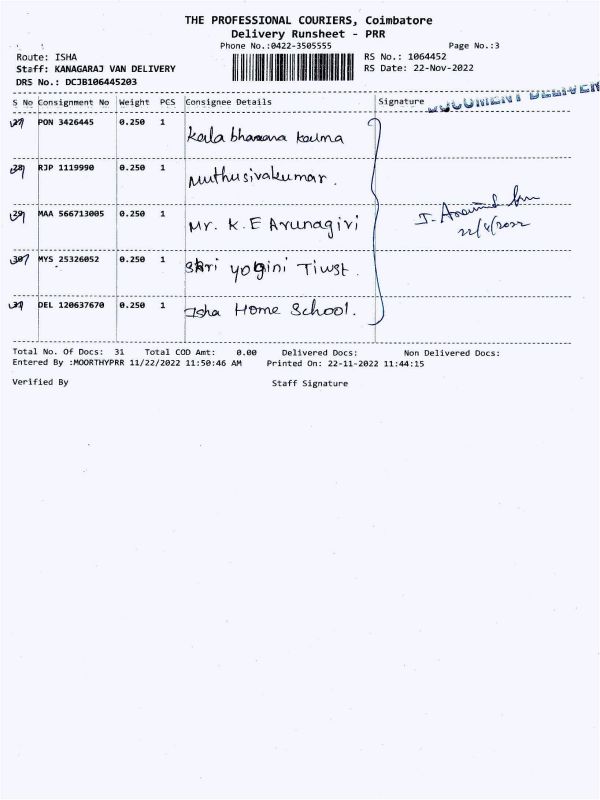 THE PROFESSIONAL COURIERS, Coimbatore
Delivery Runsheet - PRR
Phone No.:0422-3505555 Page No.:3
Route: ISHA RS No.: 1064452
Staff: KANAGARAJ VAN DELIVERY RS Date: 22-Nov-2022
DRS No.: DCJB106445203
DOCUMENT DELIVER
S No Consignment No Weight PCS Consignee Details Signature
27 PON 3426445 0.250 1
Kala bhavana
28 RJP 1119990 0.250 1
Muthusivakumar.
29 MAA 566713005 0.250 1
Mr. K. E Arunagiri
22/4/2022
30 MYS 25326052 0.250 1
Shri yogini Trust.
31 DEL 120637670 0.250 1
Isha Home School.
Total No. Of Docs: 31 Total COD Amt: 0.00 Delivered Docs: Non Delivered Docs:
Entered By :MOORTHYPRR 11/22/2022 11:50:46 AM Printed On: 22-11-2022 11:44:15
Verified By Staff Signature